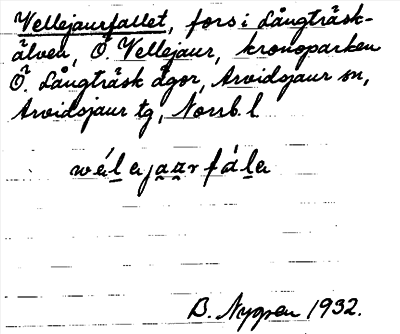 Vellejaurfallet, fors i Långträsk-
älven, Ö. Vellejaur, kronoparken
Ö. Långträsk ägor, Arvidsjaur sn,
Arvidsjaur tg, Norrb. l
wélejaarfále
B. Nygren 1932.